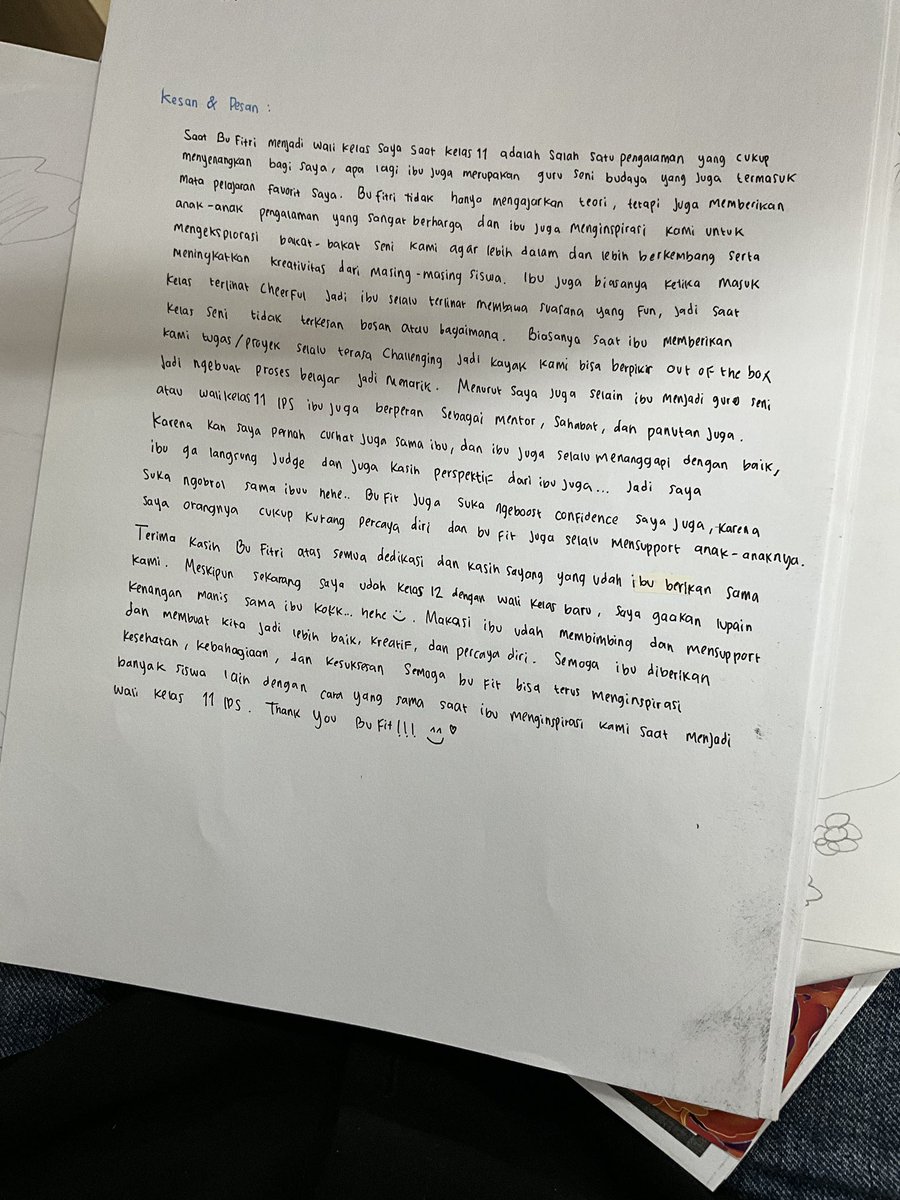 Kesan & Pesan :
Saat Bu Fitri menjadi wali kelas saya saat kelas 11 adalah salah satu pengalaman yang cukup
menyenangkan bagi saya, apa lagi ibu juga merupakan guru seni budaya yang juga termasuk
mata pelajaran favorit saya. Bu fitri tidak hanya mengajarkan teori, tetapi juga memberikan
anak-anak pengalaman yang sangat berharga dan ibu juga menginspirasi kami untuk
mengeksplorasi bakat-bakat seni kami agar lebih dalam dan lebih berkembang serta
meningkatkan kreativitas dari masing-masing siswa. Ibu juga biasanya ketika masuk
kelas terlihat cheerful jadi ibu selalu terlihat membawa suasana yang fun, jadi saat
kelas seni tidak terkesan bosan atau bagaimana. Biasanya saat ibu memberikan
kami tugas/proyek selalu terasa challenging jadi kayak kami bisa berpikir out of the box
jadi ngebuat proses belajar jadi menarik. Menurut saya juga selain ibu menjadi guru seni
atau wali kelas 11 IPS ibu juga berperan sebagai mentor, sahabat, dan panutan juga.
Karena kan saya pernah curhat juga sama ibu, dan ibu juga selalu menanggapi dengan baik,
ibu ga langsung judge dan juga kasih perspektif dari ibu juga... Jadi saya
suka ngobrol sama ibuu hehe.. Bu Fit juga suka ngeboost confidence saya juga, karena
saya orangnya cukup kurang percaya diri dan bu Fit juga selalu mensupport anak-anaknya.
Terima kasih Bu Fitri atas semua dedikasi dan kasih sayang yang udah ibu berikan sama
kami. Meskipun sekarang saya udah kelas 12 dengan wali kelas baru, saya gaakan lupain
kenangan manis sama ibu kokk... hehe. Makasi ibu udah membimbing dan mensupport
dan membuat kita jadi lebih baik, kreatif, dan percaya diri. Semoga ibu diberikan
kesehatan, kebahagiaan, dan kesuksesan semoga bu Fit bisa terus menginspirasi
banyak siswa lain dengan cara yang sama saat ibu menginspirasi kami saat menjadi
wali kelas 11 IPS. Thank You Bu Fit!!!